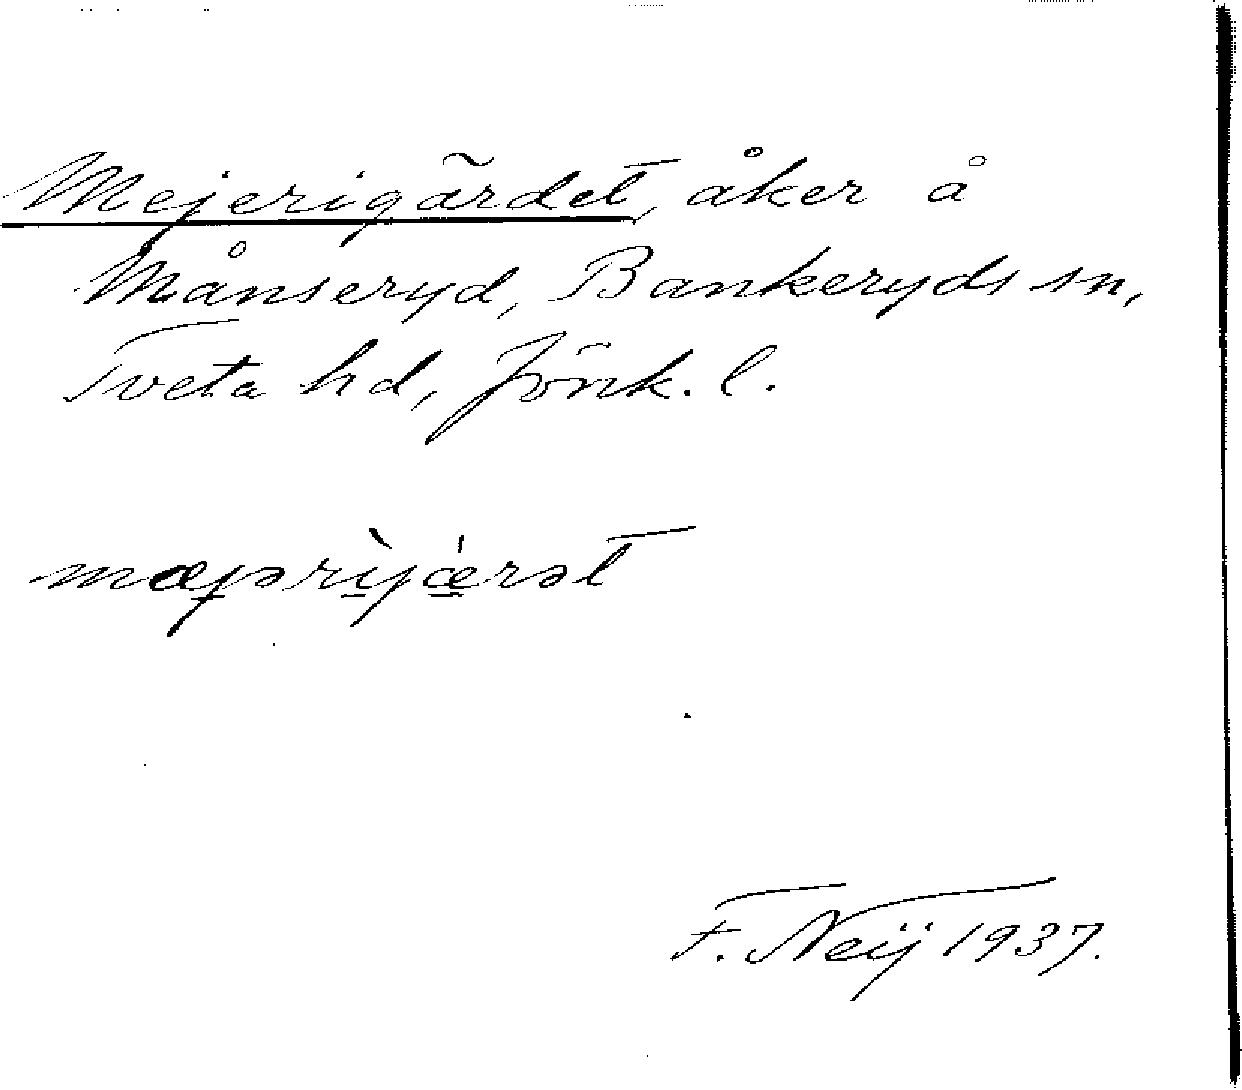 Mejerigärdet, åker å
Månseryd, Bankeryds sn,
Tveta hd, Jönk. l.
mæjərìjæ̍rət
F. Neij 1937.